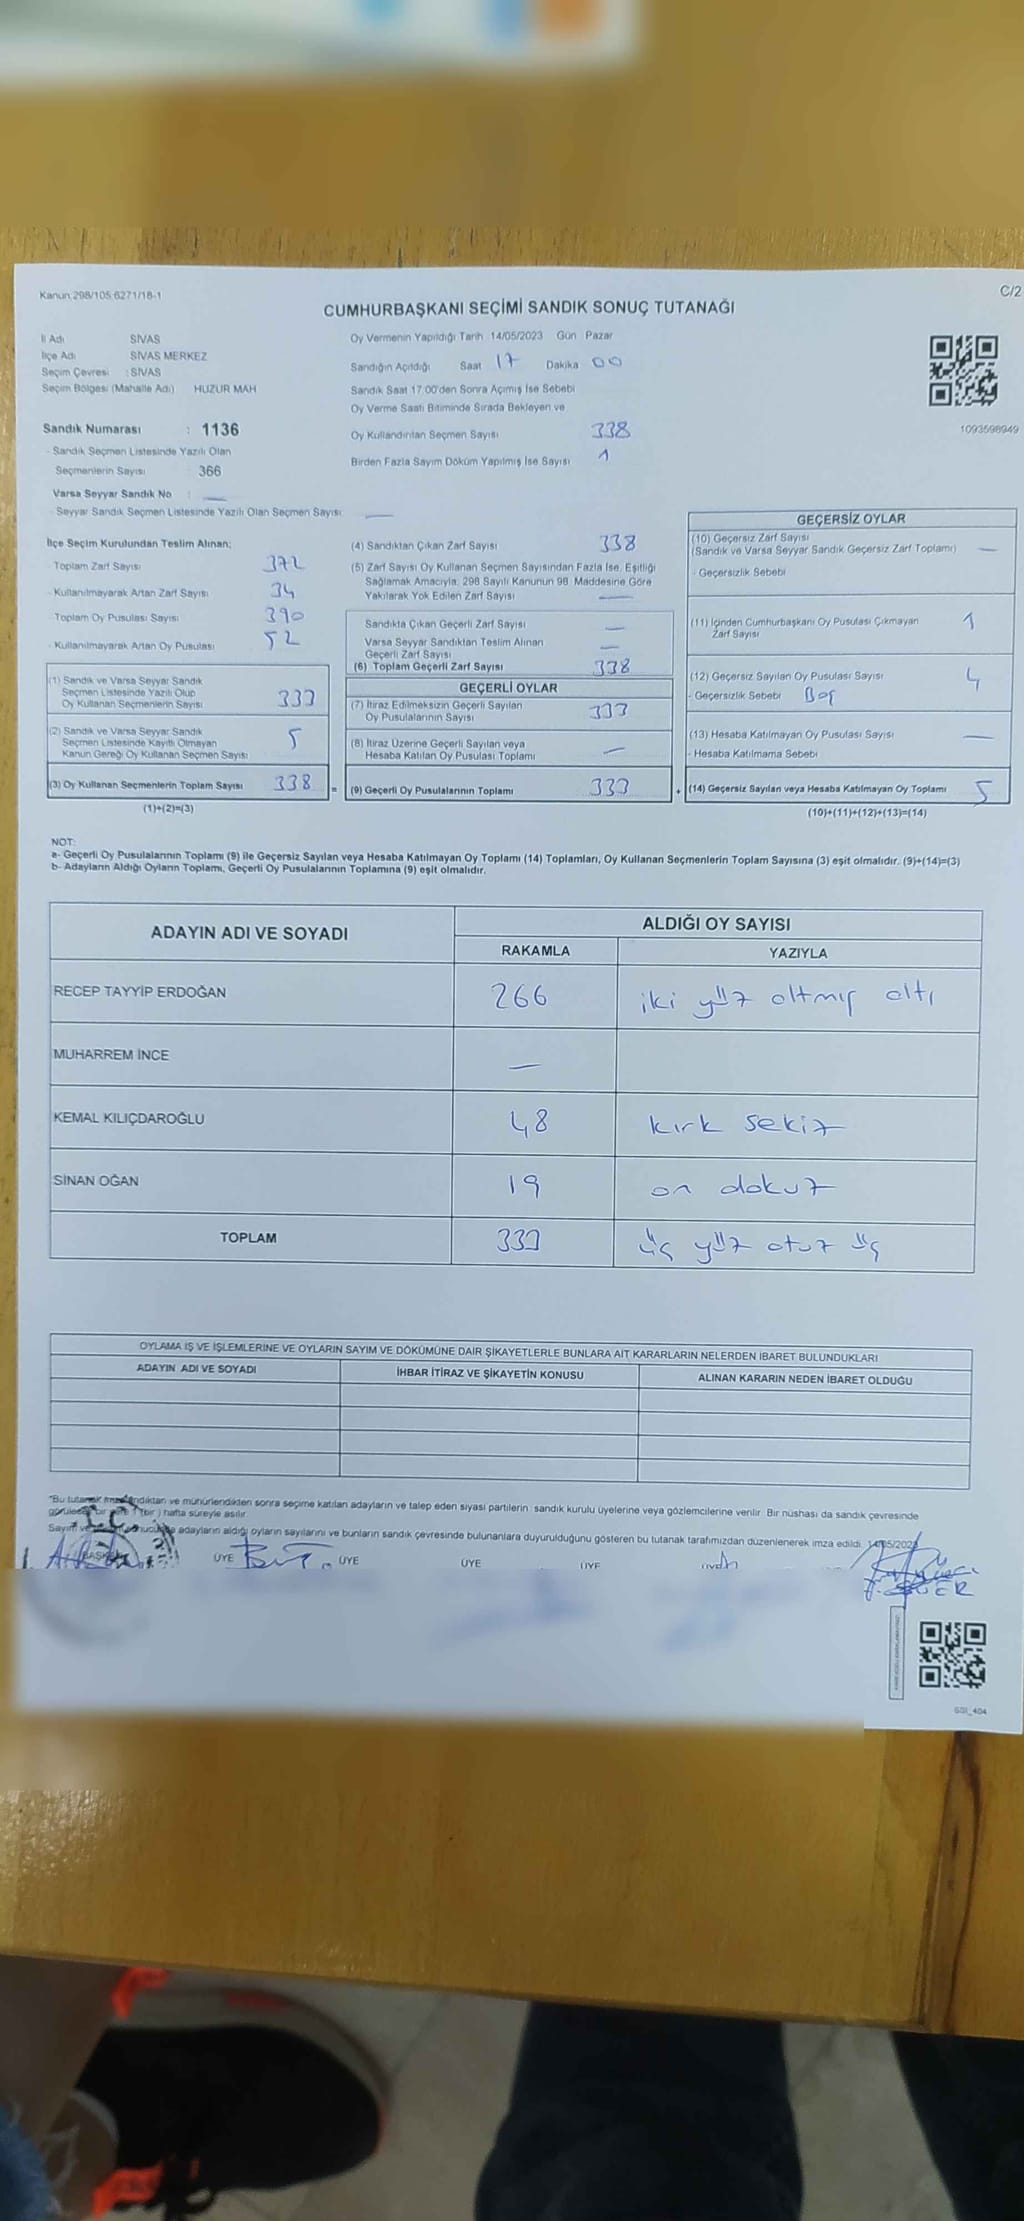 Kanun 298/105 6271/18-1
C/2
CUMHURBAŞKANI SEÇİMİ SANDIK SONUÇ TUTANAĞI
İl Adı SİVAS
İlçe Adı SİVAS MERKEZ
Seçim Çevresi : SİVAS
Seçim Bölgesi (Mahalle Adı) HUZUR MAH
Oy Vermenin Yapıldığı Tarih 14/05/2023 Gün Pazar
Sandığın Açıldığı Saat 17 Dakika 00
Sandık Saat 17:00'den Sonra Açımış İse Sebebi
Oy Verme Saati Bitiminde Sırada Bekleyen ve
Oy Kullandırılan Seçmen Sayısı 338
Birden Fazla Sayım Döküm Yapılmış İse Sayısı 1
1093598949
Sandık Numarası : 1136
- Sandık Seçmen Listesinde Yazılı Olan
Seçmenlerin Sayısı 366
Varsa Seyyar Sandık No : —
- Seyyar Sandık Seçmen Listesinde Yazılı Olan Seçmen Sayısı —
İlçe Seçim Kurulundan Teslim Alınan;
- Toplam Zarf Sayısı 372
- Kullanılmayarak Artan Zarf Sayısı 34
- Toplam Oy Pusulası Sayısı 390
- Kullanılmayarak Artan Oy Pusulası 52
(1) Sandık ve Varsa Seyyar Sandık
Seçmen Listesinde Yazılı Olup
Oy Kullanan Seçmenlerin Sayısı 333
(2) Sandık ve Varsa Seyyar Sandık
Seçmen Listesinde Kayıtlı Olmayan
Kanun Gereği Oy Kullanan Seçmen Sayısı 5
(3) Oy Kullanan Seçmenlerin Toplam Sayısı 338
(1)+(2)=(3)
(4) Sandıktan Çıkan Zarf Sayısı 338
(5) Zarf Sayısı Oy Kullanan Seçmen Sayısından Fazla İse, Eşitliği
Sağlamak Amacıyla, 298 Sayılı Kanunun 98. Maddesine Göre
Yakılarak Yok Edilen Zarf Sayısı —
Sandıkta Çıkan Geçerli Zarf Sayısı —
Varsa Seyyar Sandıktan Teslim Alınan
Geçerli Zarf Sayısı —
(6) Toplam Geçerli Zarf Sayısı 338
GEÇERLİ OYLAR
(7) İtiraz Edilmeksizin Geçerli Sayılan
Oy Pusulalarının Sayısı 333
(8) İtiraz Üzerine Geçerli Sayılan veya
Hesaba Katılan Oy Pusulası Toplamı —
= (9) Geçerli Oy Pusulalarının Toplamı 333
GEÇERSİZ OYLAR
(10) Geçersiz Zarf Sayısı
(Sandık ve Varsa Seyyar Sandık Geçersiz Zarf Toplamı) —
- Geçersizlik Sebebi
(11) İçinden Cumhurbaşkanı Oy Pusulası Çıkmayan
Zarf Sayısı 1
(12) Geçersiz Sayılan Oy Pusulası Sayısı 4
- Geçersizlik Sebebi Boş
(13) Hesaba Katılmayan Oy Pusulası Sayısı —
- Hesaba Katılmama Sebebi
+ (14) Geçersiz Sayılan veya Hesaba Katılmayan Oy Toplamı 5
(10)+(11)+(12)+(13)=(14)
NOT:
a- Geçerli Oy Pusulalarının Toplamı (9) ile Geçersiz Sayılan veya Hesaba Katılmayan Oy Toplamı (14) Toplamları, Oy Kullanan Seçmenlerin Toplam Sayısına (3) eşit olmalıdır. (9)+(14)=(3)
b- Adayların Aldığı Oyların Toplamı, Geçerli Oy Pusulalarının Toplamına (9) eşit olmalıdır.
ADAYIN ADI VE SOYADI ALDIĞI OY SAYISI
RAKAMLA YAZIYLA
RECEP TAYYİP ERDOĞAN 266 iki yüz altmış altı
MUHARREM İNCE —
KEMAL KILIÇDAROĞLU 48 kırk sekiz
SİNAN OĞAN 19 on dokuz
TOPLAM 333 üç yüz otuz üç
OYLAMA İŞ VE İŞLEMLERİNE VE OYLARIN SAYIM VE DÖKÜMÜNE DAİR ŞİKAYETLERLE BUNLARA AİT KARARLARIN NELERDEN İBARET BULUNDUKLARI
ADAYIN ADI VE SOYADI İHBAR İTİRAZ VE ŞİKAYETİN KONUSU ALINAN KARARIN NEDEN İBARET OLDUĞU
"Bu tutanak imzalandıktan ve mühürlendikten sonra seçime katılan adayların ve talep eden siyasi partilerin sandık kurulu üyelerine veya gözlemcilerine verilir. Bir nüshası da sandık çevresinde
bir (bir) hafta süreyle asılır
Sayım ve adayların aldığı oyların sayılarını ve bunların sandık çevresinde bulunanlara duyurulduğunu gösteren bu tutanak tarafımızdan düzenlenerek imza edildi. 14/05/2023
T.C.
BAŞKAN ÜYE ÜYE ÜYE ÜYE
GGI_404